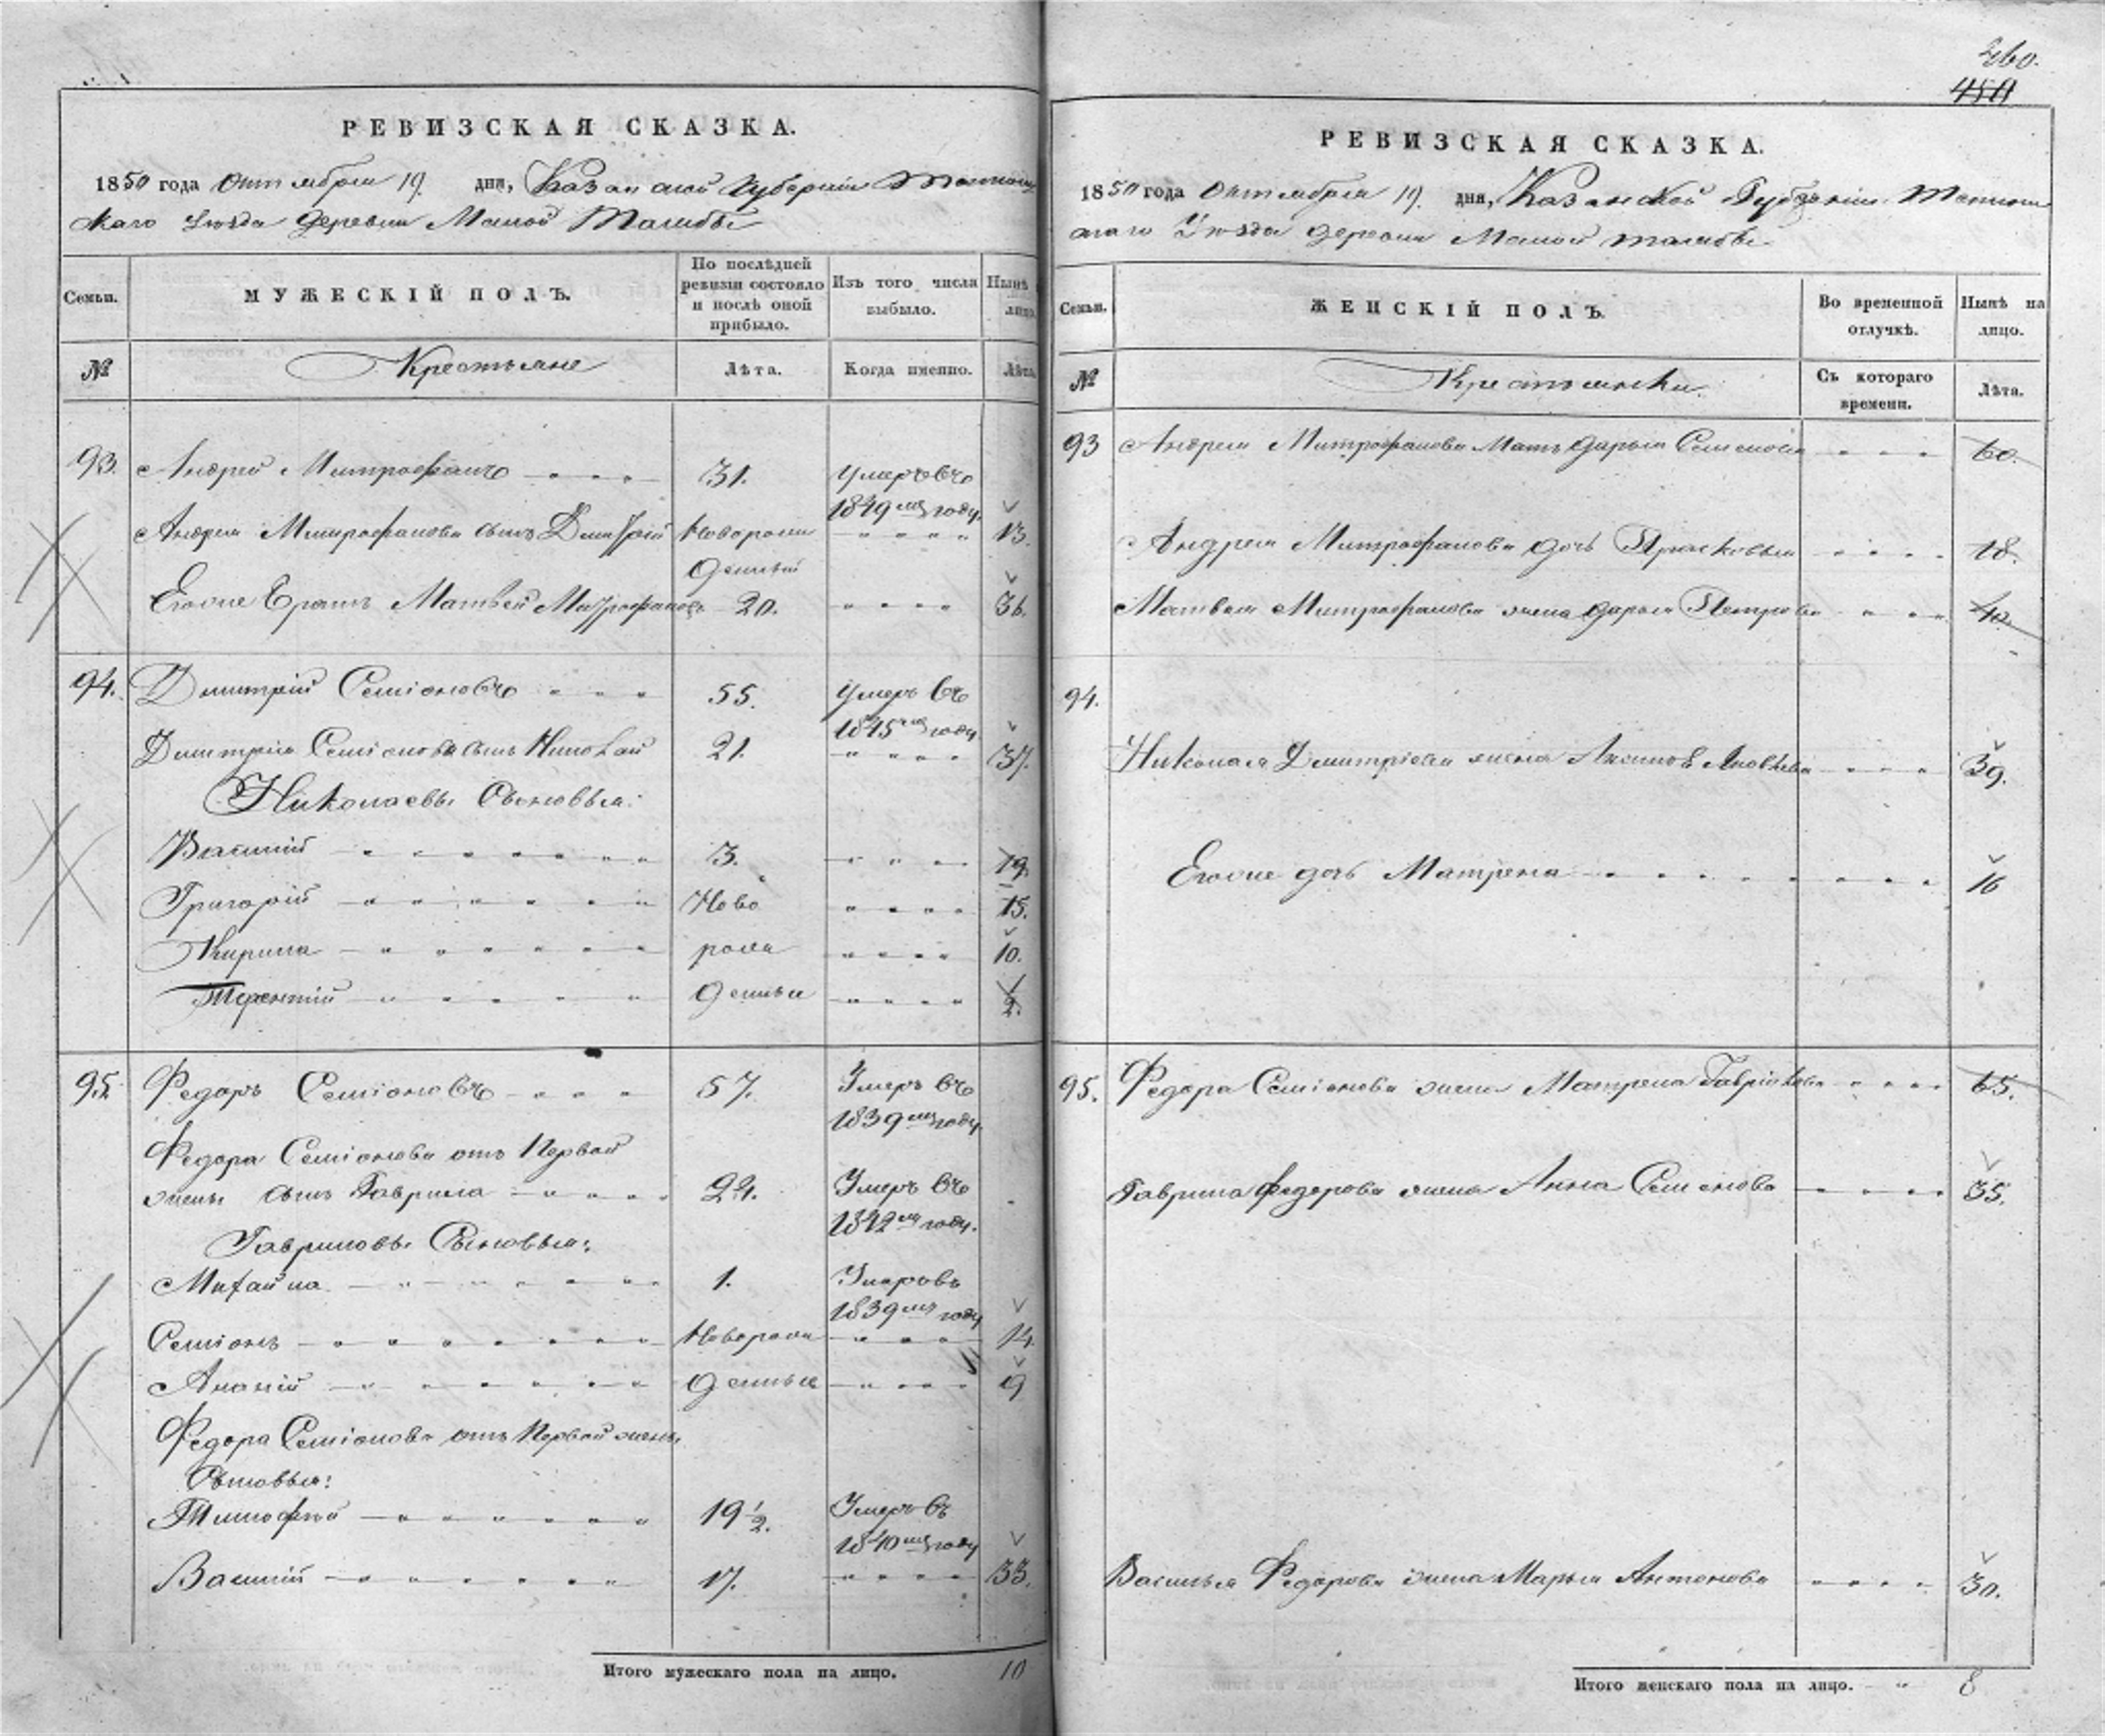 РЕВИЗСКАЯ СКАЗКА.
1850 года Октября 19. дня, Казанской Губернiи
скаго Уѣзда Деревни Малой
Семьи.
МУЖЕСКIЙ ПОЛЪ.
По послѣдней ревизiи состояло и послѣ оной прибыло.
Изъ того числа выбыло.
Нынѣ лицо.
№
Крестьяне
Лѣта.
Когда именно.
Лѣта
93. Андрей Митрофановъ 31. Умеръ въ
1849мъ году.
Андрея Митрофанова сынъ Дмитрiй Новорож 13.
денный
Егоже братъ Матвей Митрофановъ 20. 36.
94. Дмитрiй Семiоновъ 55. Умеръ въ
1845мъ году
Дмитрiя Семiонова сынъ Николай 21. 37.
Николаевы Сыновья:
Василiй 3. 19.
Григорiй Ново 15.
Кирила рож 10.
Терентiй денные 2.
95. Федоръ Семiоновъ 57. Умеръ въ
1839мъ году
Федора Семiонова отъ Первой
жены сынъ Гаврила 24. Умеръ въ
1842мъ году.
Гавриловы Сыновья:
Михайла 1. Умеръ въ
1839мъ году
Семiонъ Новорож 14.
Ананiй денные 9
Федора Семiонова отъ Первой жены
Сыновья:
Тимофей 19 1/2. Умеръ въ
1840мъ году
Василiй 17. 33.
Итого мужескаго пола на лицо. 10
260.
РЕВИЗСКАЯ СКАЗКА.
1850 года Октября 19. дня, Казанской Губернiи
скаго Уѣзда деревни Малой
Семьи.
ЖЕНСКIЙ ПОЛЪ.
Во временной отлучкѣ.
Нынѣ на лицо.
№
Крестьянки.
Съ котораго времени.
Лѣта.
93 Андрея Митрофанова Мать Дарья Семенова 60.
Андрея Митрофанова дочь Прасковья 18.
Матвея Митрофанова жена Дарья Петрова 40.
94.
Николая Дмитрiева жена Яковлева 39.
Егоже дочь Матрена 16
95. Федора Семiонова жена Матрена Гаврилова 65.
Гаврила Федорова жена Анна Семенова 35.
Василья Федорова жена Марья Антонова 30.
Итого женскаго пола на лицо. 8